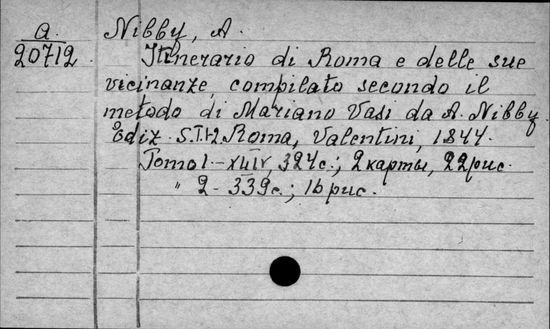 a. Nibby, A.
20712. Itinerario di Roma e delle sue
vicinanze, compilato secondo il
metodo di Mariano Vasi da A. Nibby.
Ediz. 5. T. 1-2. Roma, Valentini, 1844.
Tomo 1. - XLIV, 324 с.; 2 карты, 22 рис.
" 2 - 339 с.; 16 рис.